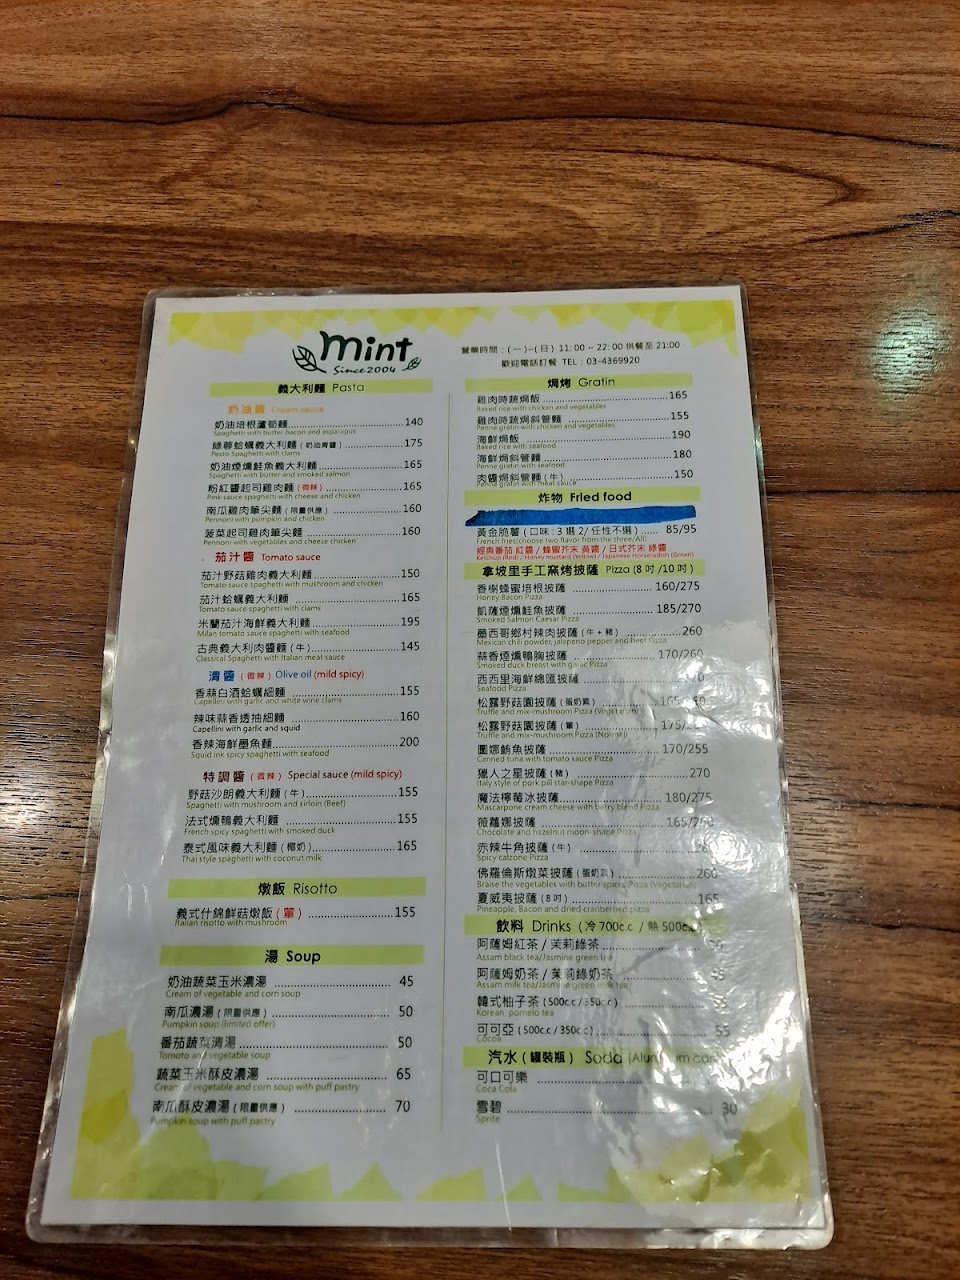 mint
Since 2004
營業時間：(一)~(日) 11:00 ~ 22:00 供餐至 21:00
歡迎電話訂餐 TEL：03-4369920
義大利麵 Pasta
奶油醬 Cream sauce
奶油培根蘆筍麵 140
Spaghetti with butter bacon and asparagus
綠蓉蛤蠣義大利麵 (奶油青醬) 175
Pesto Spaghetti with clams
奶油煙燻鮭魚義大利麵 165
Spaghetti with butter and smoked salmon
粉紅醬起司雞肉麵 (微辣) 165
Pink sauce spaghetti with cheese and chicken
南瓜雞肉筆尖麵 (限量供應) 160
Pennoni with pumpkin and chicken
菠菜起司雞肉筆尖麵 160
Pennoni with vegetables and cheese chicken
茄汁醬 Tomato sauce
茄汁野菇雞肉義大利麵 150
Tomato sauce spaghetti with mushroom and chicken
茄汁蛤蠣義大利麵 165
Tomato sauce spaghetti with clams
米蘭茄汁海鮮義大利麵 195
Milan tomato sauce spaghetti with seafood
古典義大利肉醬麵 (牛) 145
Classical Spaghetti with Italian meat sauce
清醬 (微辣) Olive oil (mild spicy)
香蒜白酒蛤蠣細麵 155
Capellini with garlic and white wine clams
辣味蒜香透抽細麵 160
Capellini with garlic and squid
香辣海鮮墨魚麵 200
Squid ink spicy spaghetti with seafood
特調醬 (微辣) Special sauce (mild spicy)
野菇沙朗義大利麵 (牛) 155
Spaghetti with mushroom and sirloin (Beef)
法式燻鴨義大利麵 155
French spicy spaghetti with smoked duck
泰式風味義大利麵 (椰奶) 165
Thai style spaghetti with coconut milk
燉飯 Risotto
義式什錦鮮菇燉飯 (葷) 155
Italian risotto with mushroom
湯 Soup
奶油蔬菜玉米濃湯 45
Cream of vegetable and corn soup
南瓜濃湯 (限量供應) 50
Pumpkin soup (limited offer)
番茄蔬菜清湯 50
Tomato and vegetable soup
蔬菜玉米酥皮濃湯 65
Cream of vegetable and corn soup with puff pastry
南瓜酥皮濃湯 (限量供應) 70
Pumpkin soup with puff pastry
焗烤 Gratin
雞肉時蔬焗飯 165
Baked rice with chicken and vegetables
雞肉時蔬焗斜管麵 155
Penne gratin with chicken and vegetables
海鮮焗飯 190
Baked rice with seafood
海鮮焗斜管麵 180
Penne gratin with seafood
肉醬焗斜管麵 (牛) 150
Penne gratin with meat sauce
炸物 Fried food
黃金脆薯 (口味：3 選 2/ 任性不選) 85/95
French fries(choose two flavor from the three/All)
經典番茄 紅醬 / 蜂蜜芥末 黃醬 / 日式芥末 綠醬
Ketchup (Red) / Honey mustard (Yellow) / Japanese Horseradish (Green)
拿坡里手工窯烤披薩 Pizza (8 吋 /10 吋)
香榭蜂蜜培根披薩 160/275
Honey Bacon Pizza
凱薩煙燻鮭魚披薩 185/270
Smoked Salmon Caesar Pizza
墨西哥鄉村辣肉披薩 (牛 + 豬) 260
Mexican chili powder, jalapeno pepper and Beef Pizza
蒜香煙燻鴨胸披薩 170/260
Smoked duck breast with garlic Pizza
西西里海鮮總匯披薩
Seafood Pizza
松露野菇園披薩 (蛋奶素)
Truffle and mix-mushroom Pizza (Vegetarian)
松露野菇園披薩 (葷)
Truffle and mix-mushroom Pizza
圖娜鮪魚披薩 170/255
Canned tuna with tomato sauce Pizza
獵人之星披薩 (豬) 270
Italy style of pork pill star-shape Pizza
魔法檸莓冰披薩 180/275
Mascarpone cream cheese with berry blend Pizza
薇蘿娜披薩
Chocolate and hazelnut moon-shape Pizza
赤辣牛角披薩 (牛)
Spicy calzone Pizza
佛羅倫斯燉菜披薩 (蛋奶素) 260
Braise the vegetables with butter spices Pizza (Vegetarian)
夏威夷披薩 (8 吋) 165
Pineapple, Bacon and dried cranberried pizza
飲料 Drinks (冷 700c.c / 熱 500c.c)
阿薩姆紅茶 / 茉莉綠茶
Assam black tea/Jasmine green tea
阿薩姆奶茶 / 茉莉綠奶茶
Assam milk tea/Jasmine green milk tea
韓式柚子茶 (500c.c / 350c.c)
Korean pomelo tea
可可亞 (500c.c / 350c.c) 55
Cocoa
汽水 (罐裝瓶) Soda
可口可樂
Coca Cola
雪碧 30
Sprite